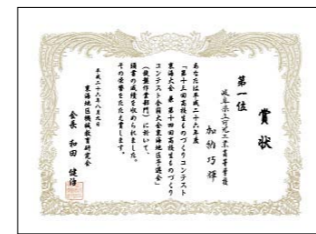 賞状
第一位
岐阜県立可児工業高等学校
加納巧輝
あなたは平成二十六年度
「第十三回高校生ものづくりコンテスト
東海大会 兼 第十四回高校生ものづくり
コンテスト全国大会東海地区予選会」
(旋盤作業部門)に於いて、
頭書の成績を収められました。
その栄誉をたたえ賞します。
平成二十六年八月九日
東海地区機械教育研究会
会長 和田 健治